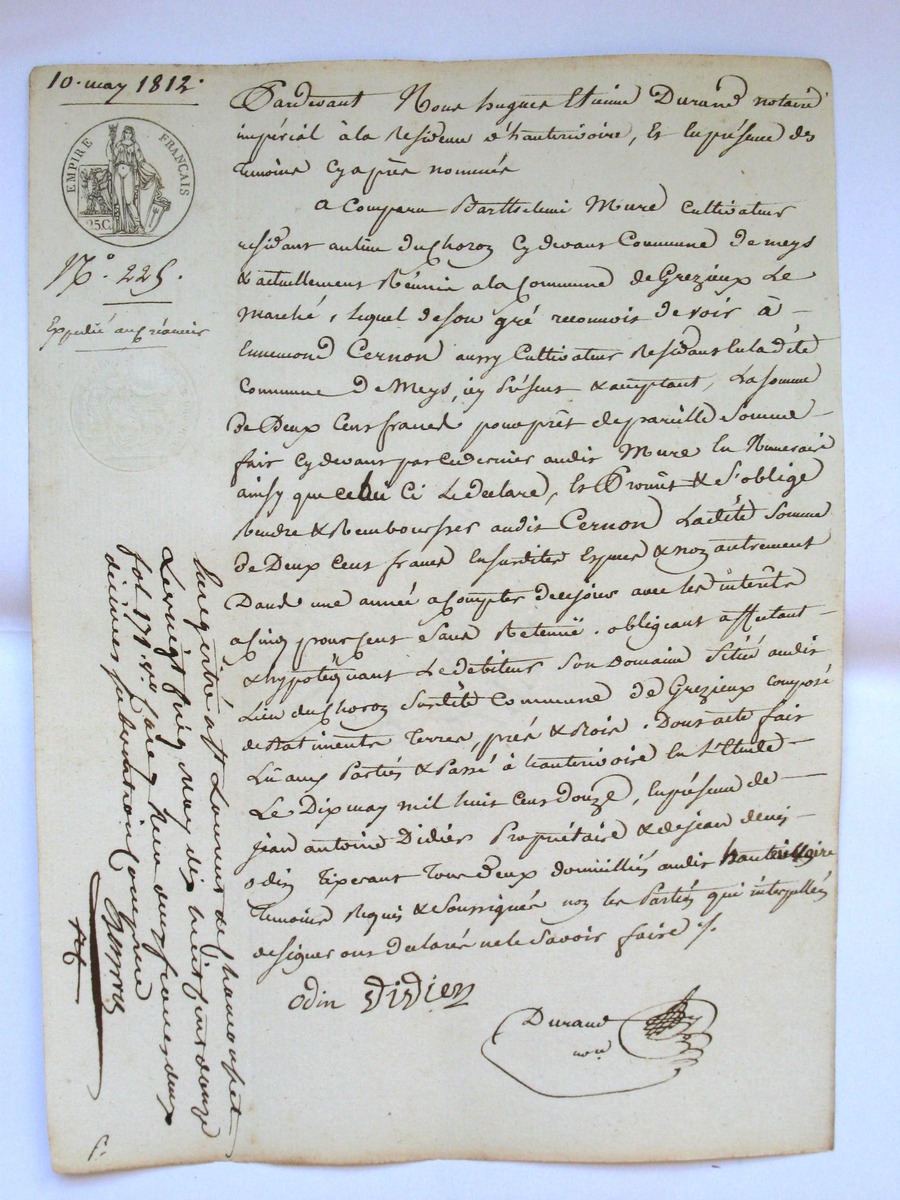 10. may 1812.
EMPIRE FRANÇAIS
25.C.
N.° 225.
Expedié au créancier
Pardevant Nous hugues Etienne Durand notaire
impérial à la Residence d'hauterivoire, Et En présence des
temoins Cy après nommés
a Comparu Barthelemi Mure Cultivateur
residant au lieu du Choroz Cy devant Commune de meys
& actuellement Réunie a la Commune de Grezieux Le
Marché, lequel de Son gré reconnois devoir à -
Ennemond Cernon aussy Cultivateur Residant En ladéte
Commune De Meys, icy Présent & acceptant, La Somme
de Deux Cent francs pour prêt de pareille Somme -
fait Cy devant par ce dernier audit Mure En Numeraire
ainsy que celui Ci Le declare, Et Promêt & S'oblige
Rendre & Rembourser audit Cernon Ladéte Somme
de Deux Cent francs En Susdites Espèces & non autrement
Dans une année a Compter de ce jour avec les intérêts
a Cinq pour Cent Sans Retenüe. obligeant affectant -
& hypotéquant Le debiteur Son Domaine Sitüé audit
Lieu du Choroz Susdite Commune de Grezieux Composé
de Batiments Terres, prés & Bois. Dont acte fait
Lü aux Parties & Passé à hauterivoire En L'Etude -
Le Dix may mil huit Cent douze, En présence de -
jean antoine Didier Propriétaire & de jean denis -
odin tisserant Tous Deux domiciliés audit hauterivoire
temoins Requis & Soussignés non les Parties qui interpellés
de signer ont declarés ne le Savoir faire ./.
odin Didier
Durand
nore
Enregistré à St Laurent de Chamousset
Le vingt may dix huit cent douze
fol 171 Reçu deux francs deux
décimes subvention comprise